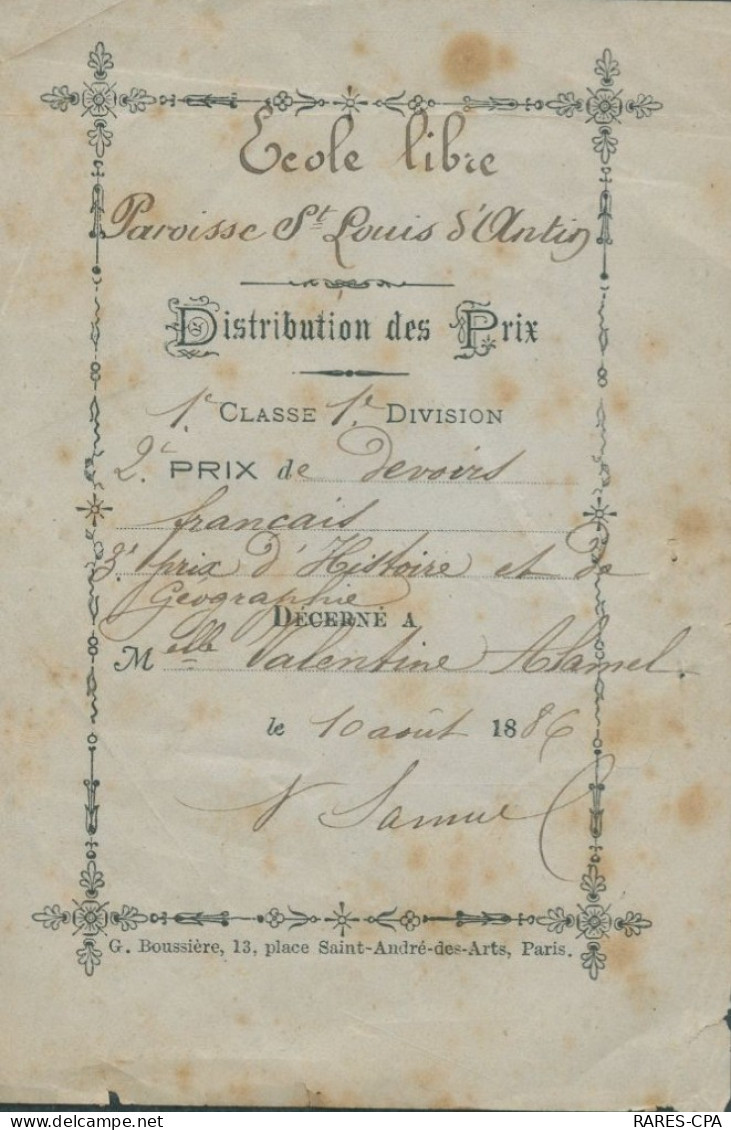 Ecole libre
Paroisse St Louis d'Antin
Distribution des Prix
1e. CLASSE 1e. DIVISION
2e. PRIX de devoirs
francais
3e. prix d'Histoire et de
Géographie
DÉCERNÉ A
Melle Valentine Alamel.
le 10 août 1886
Samuel
G. Boussière, 13, place Saint-André-des-Arts, Paris.
RARES-CPA